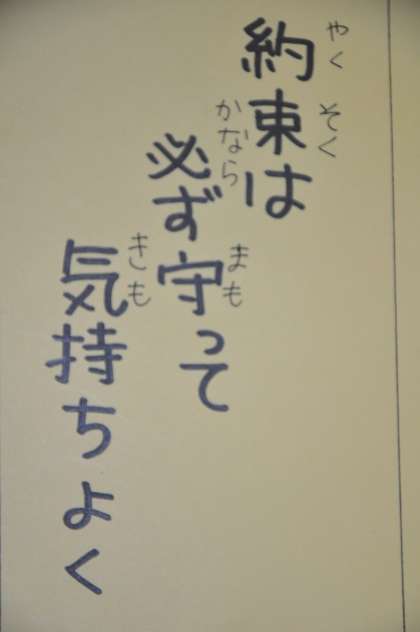 約束は
やくそく
必ず守って
かなら まも
気持ちよく
きも